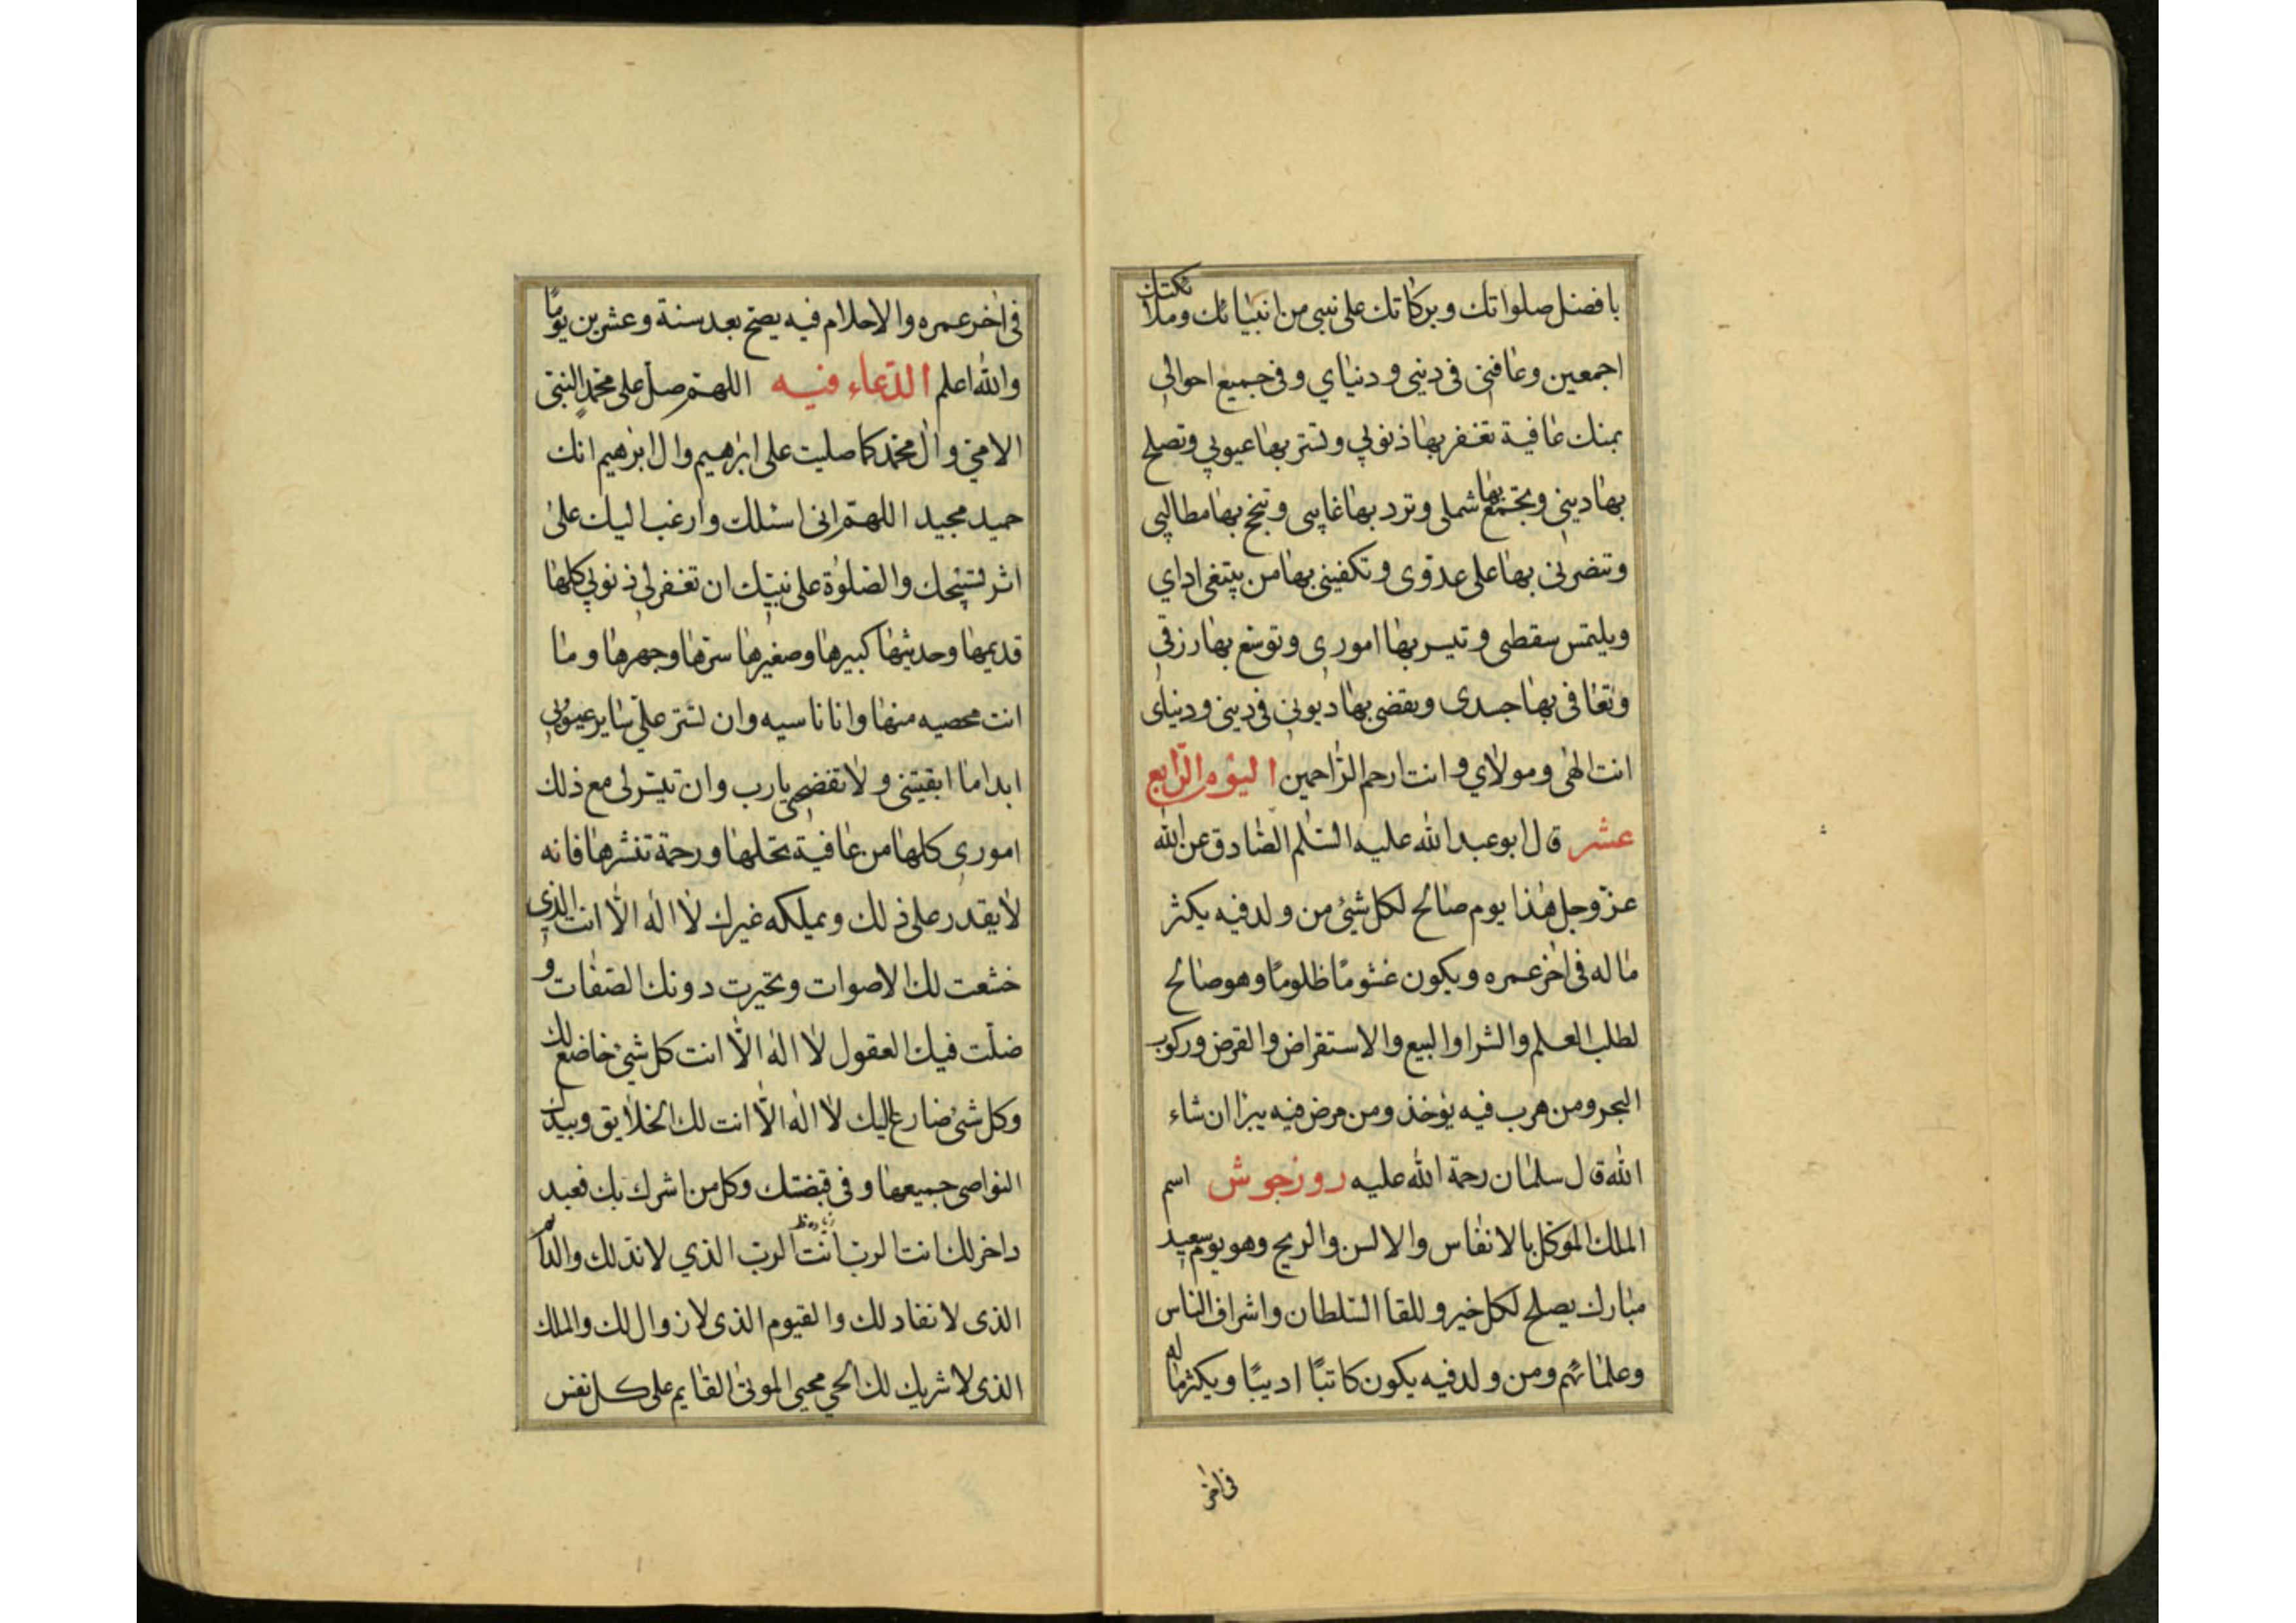 بافضل صلواتك وبركاتك على نبي من انبيائك وملائكتك
اجمعين وعافني في ديني ودنياي وفي جميع احوالي
بمنك عافية تغفر بها ذنوبي وتستر بها عيوبي وتصلح
بها ديني وتجمع بها شملي وترد بها غايبي وتنجح بها مطالبي
وتنصرني بها على عدوى وتكفيني بها من يبتغي اداي
ويلتمس سقطى وتيسر بها اموري وتوسع بها رزقي
وتعافى بها جسدى وتقضى بها ديوني في ديني ودنياى
انت الهي ومولاي وانت ارحم الراحمين اليوم الرابع
عشر قال ابو عبد الله عليه السلم الصادق عن الله
عز وجل هذا يوم صالح لكل شيئ من ولد فيه يكثر
ماله في اخر عمره ويكون غشومًا ظلومًا وهو صالح
لطلب العلم والشرا والبيع والاستقراض والقرض وركوب
البحر ومن هرب فيه يؤخذ ومن مرض فيه يبرا ان شاء
الله قال سلمان رحمة الله عليه روزجوش اسم
الملك الموكل بالانفاس والالسن والريح وهو يوم سعيد
مبارك يصلح لكل خير وللقا السلطان واشراف الناس
وعلمائهم ومن ولد فيه يكون كاتبًا اديبًا ويكثر ماله
في اخر
في اخر عمره والاحلام فيه يصح بعد ستة وعشرين يومًا
والله اعلم الدعاء فيه اللهم صل على محمد النبي
الامي وال محمد كما صليت على ابرهيم وال ابرهيم انك
حميد مجيد اللهم اني اسئلك وارغب اليك على
اثر تسبيحك والصلوة على نبيك ان تغفر لي ذنوبي كلها
قديمها وحديثها كبيرها وصغيرها سرها وجهرها وما
انت محصيه منها وانا ناسيه وان تستر علي ساير عيوبي
ابدا ما ابقيتني ولا تفضحني يارب وان تيسر لي مع ذلك
اموري كلها من عافية تجللها ورحمة تنشرها فانه
لا يقدر على ذلك ويملكه غيرك لا اله الا انت الذي
خشعت لك الاصوات وتحيرت دونك الصفات و
ضلت فيك العقول لا اله الا انت كل شيئ خاضع لك
وكل شئ ضارع اليك لا اله الا انت لك الخلايق وبيدك
النواصي جميعها وفي قبضتك وكل من اشرك بك فعبد
داخر لك انت الرب انت الرب الذي لا ند لك والدائم
الذى لا نفاد لك والقيوم الذى لا زوال لك والملك
الذى لا شريك لك الحي محيي الموتى القايم على كل نفس